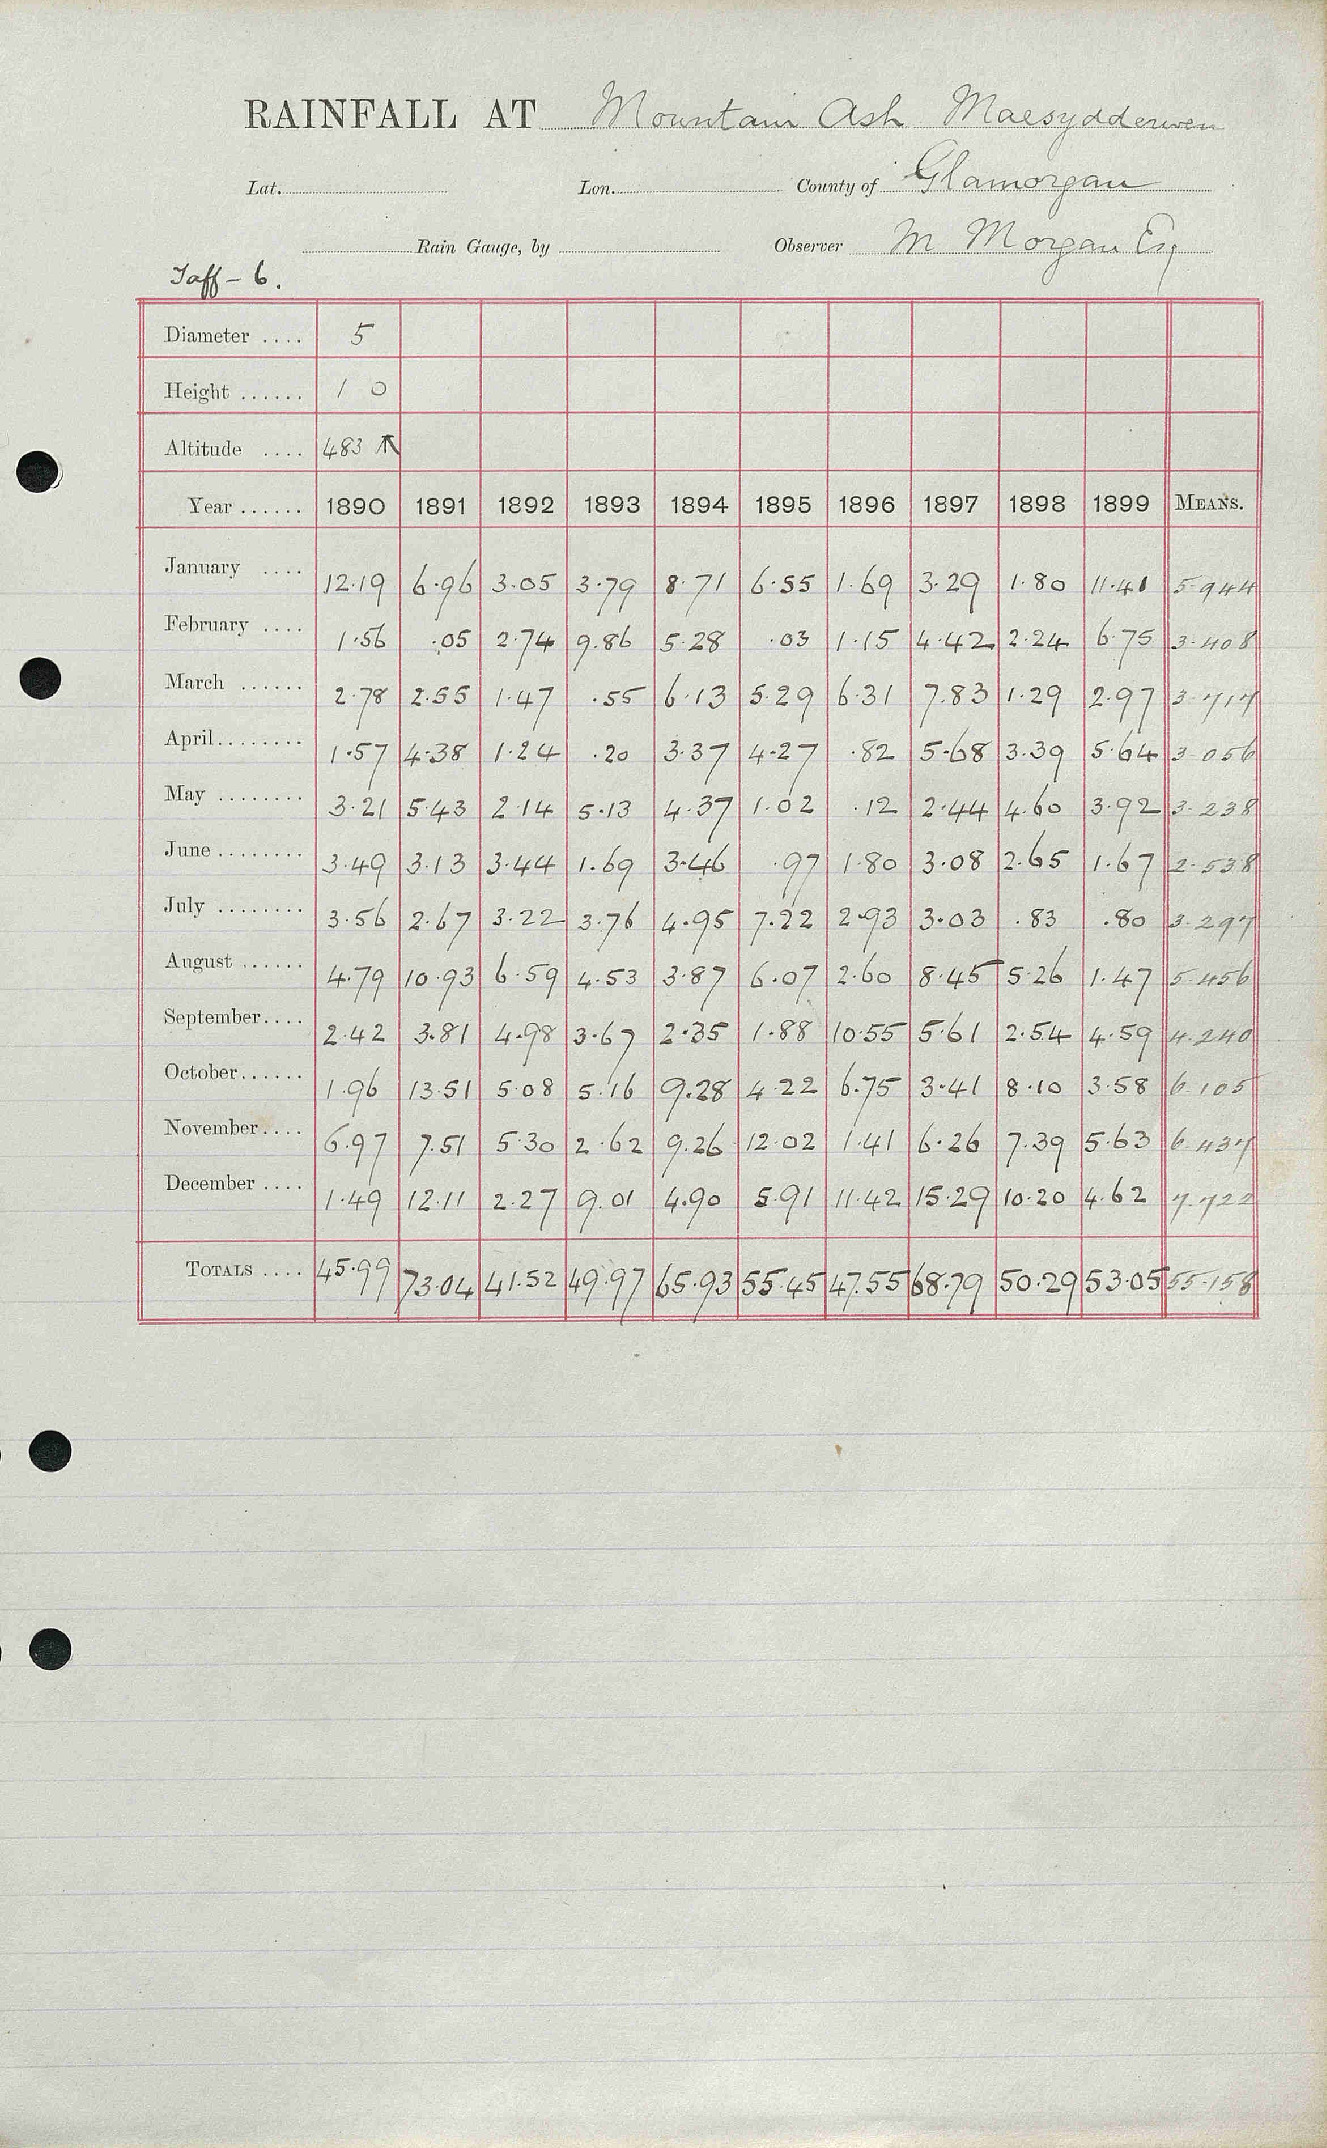 RAINFALL AT Mountain Ash Maesydderwen
Lat. Lon. County of Glamorgan
Rain Gauge, by Observer M Morgan Esq
Taff - 6.
Diameter .... 5
Height ...... 1 0
Altitude .... 483
Year ...... 1890 1891 1892 1893 1894 1895 1896 1897 1898 1899 MEANS.
January .... 12.19 6.96 3.05 3.79 8.71 6.55 1.69 3.29 1.80 11.41 5.944
February .... 1.56 .05 2.74 9.86 5.28 .03 1.15 4.42 2.24 6.75 3.408
March ...... 2.78 2.55 1.47 .55 6.13 5.29 6.31 7.83 1.29 2.97 3.717
April........ 1.57 4.38 1.24 .20 3.37 4.27 .82 5.68 3.39 5.64 3.056
May ........ 3.21 5.43 2.14 5.13 4.37 1.02 .12 2.44 4.60 3.92 3.238
June ........ 3.49 3.13 3.44 1.69 3.46 .97 1.80 3.08 2.65 1.67 2.538
July ........ 3.56 2.67 3.22 3.76 4.95 7.22 2.93 3.03 .83 .80 3.297
August ...... 4.79 10.93 6.59 4.53 3.87 6.07 2.60 8.45 5.26 1.47 5.456
September.... 2.42 3.81 4.98 3.67 2.35 1.88 10.55 5.61 2.54 4.59 4.240
October...... 1.96 13.51 5.08 5.16 9.28 4.22 6.75 3.41 8.10 3.58 6.105
November.... 6.97 7.51 5.30 2.62 9.26 12.02 1.41 6.26 7.39 5.63 6.437
December .... 1.49 12.11 2.27 9.01 4.90 5.91 11.42 15.29 10.20 4.62 7.722
TOTALS .... 45.99 73.04 41.52 49.97 65.93 55.45 47.55 68.79 50.29 53.05 55.158